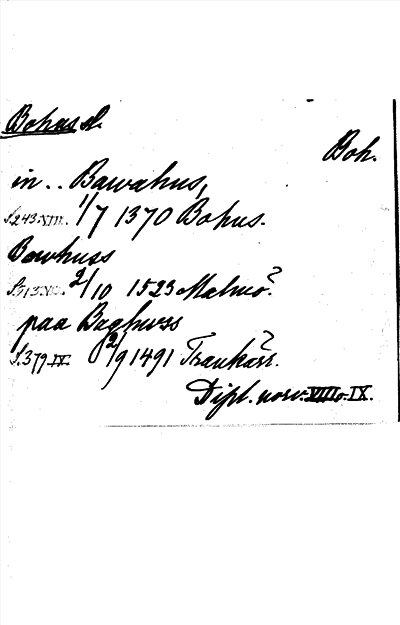 Bohus sl.
Boh.
in .. Bawahus,
S. 243. VIII. 1/7 1370 Bohus.
Bowhuss
S. 513. 2/10 1523 Malmö?
paa Baghwss
S. 379. IX. 2/9 1491 Trankärr?
Dipl. norv. VIII o. IX.